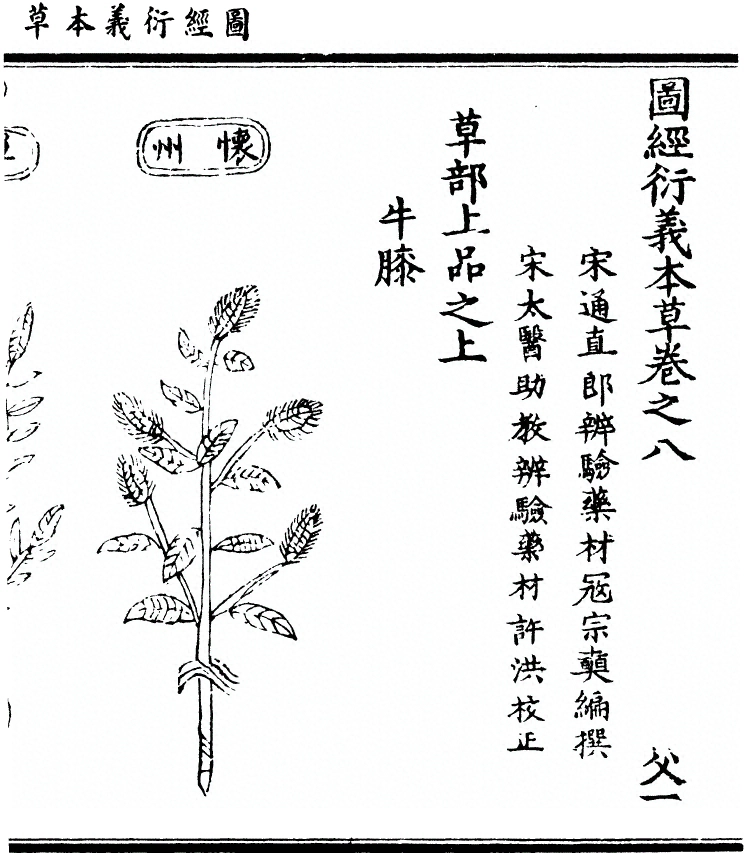 圖經衍義本草
圖經衍義本草卷之八
父一
宋通直郎辨驗藥材冦宗奭編撰
宋太醫助教辨驗藥材許洪校正
草部上品之上
牛膝
懷州